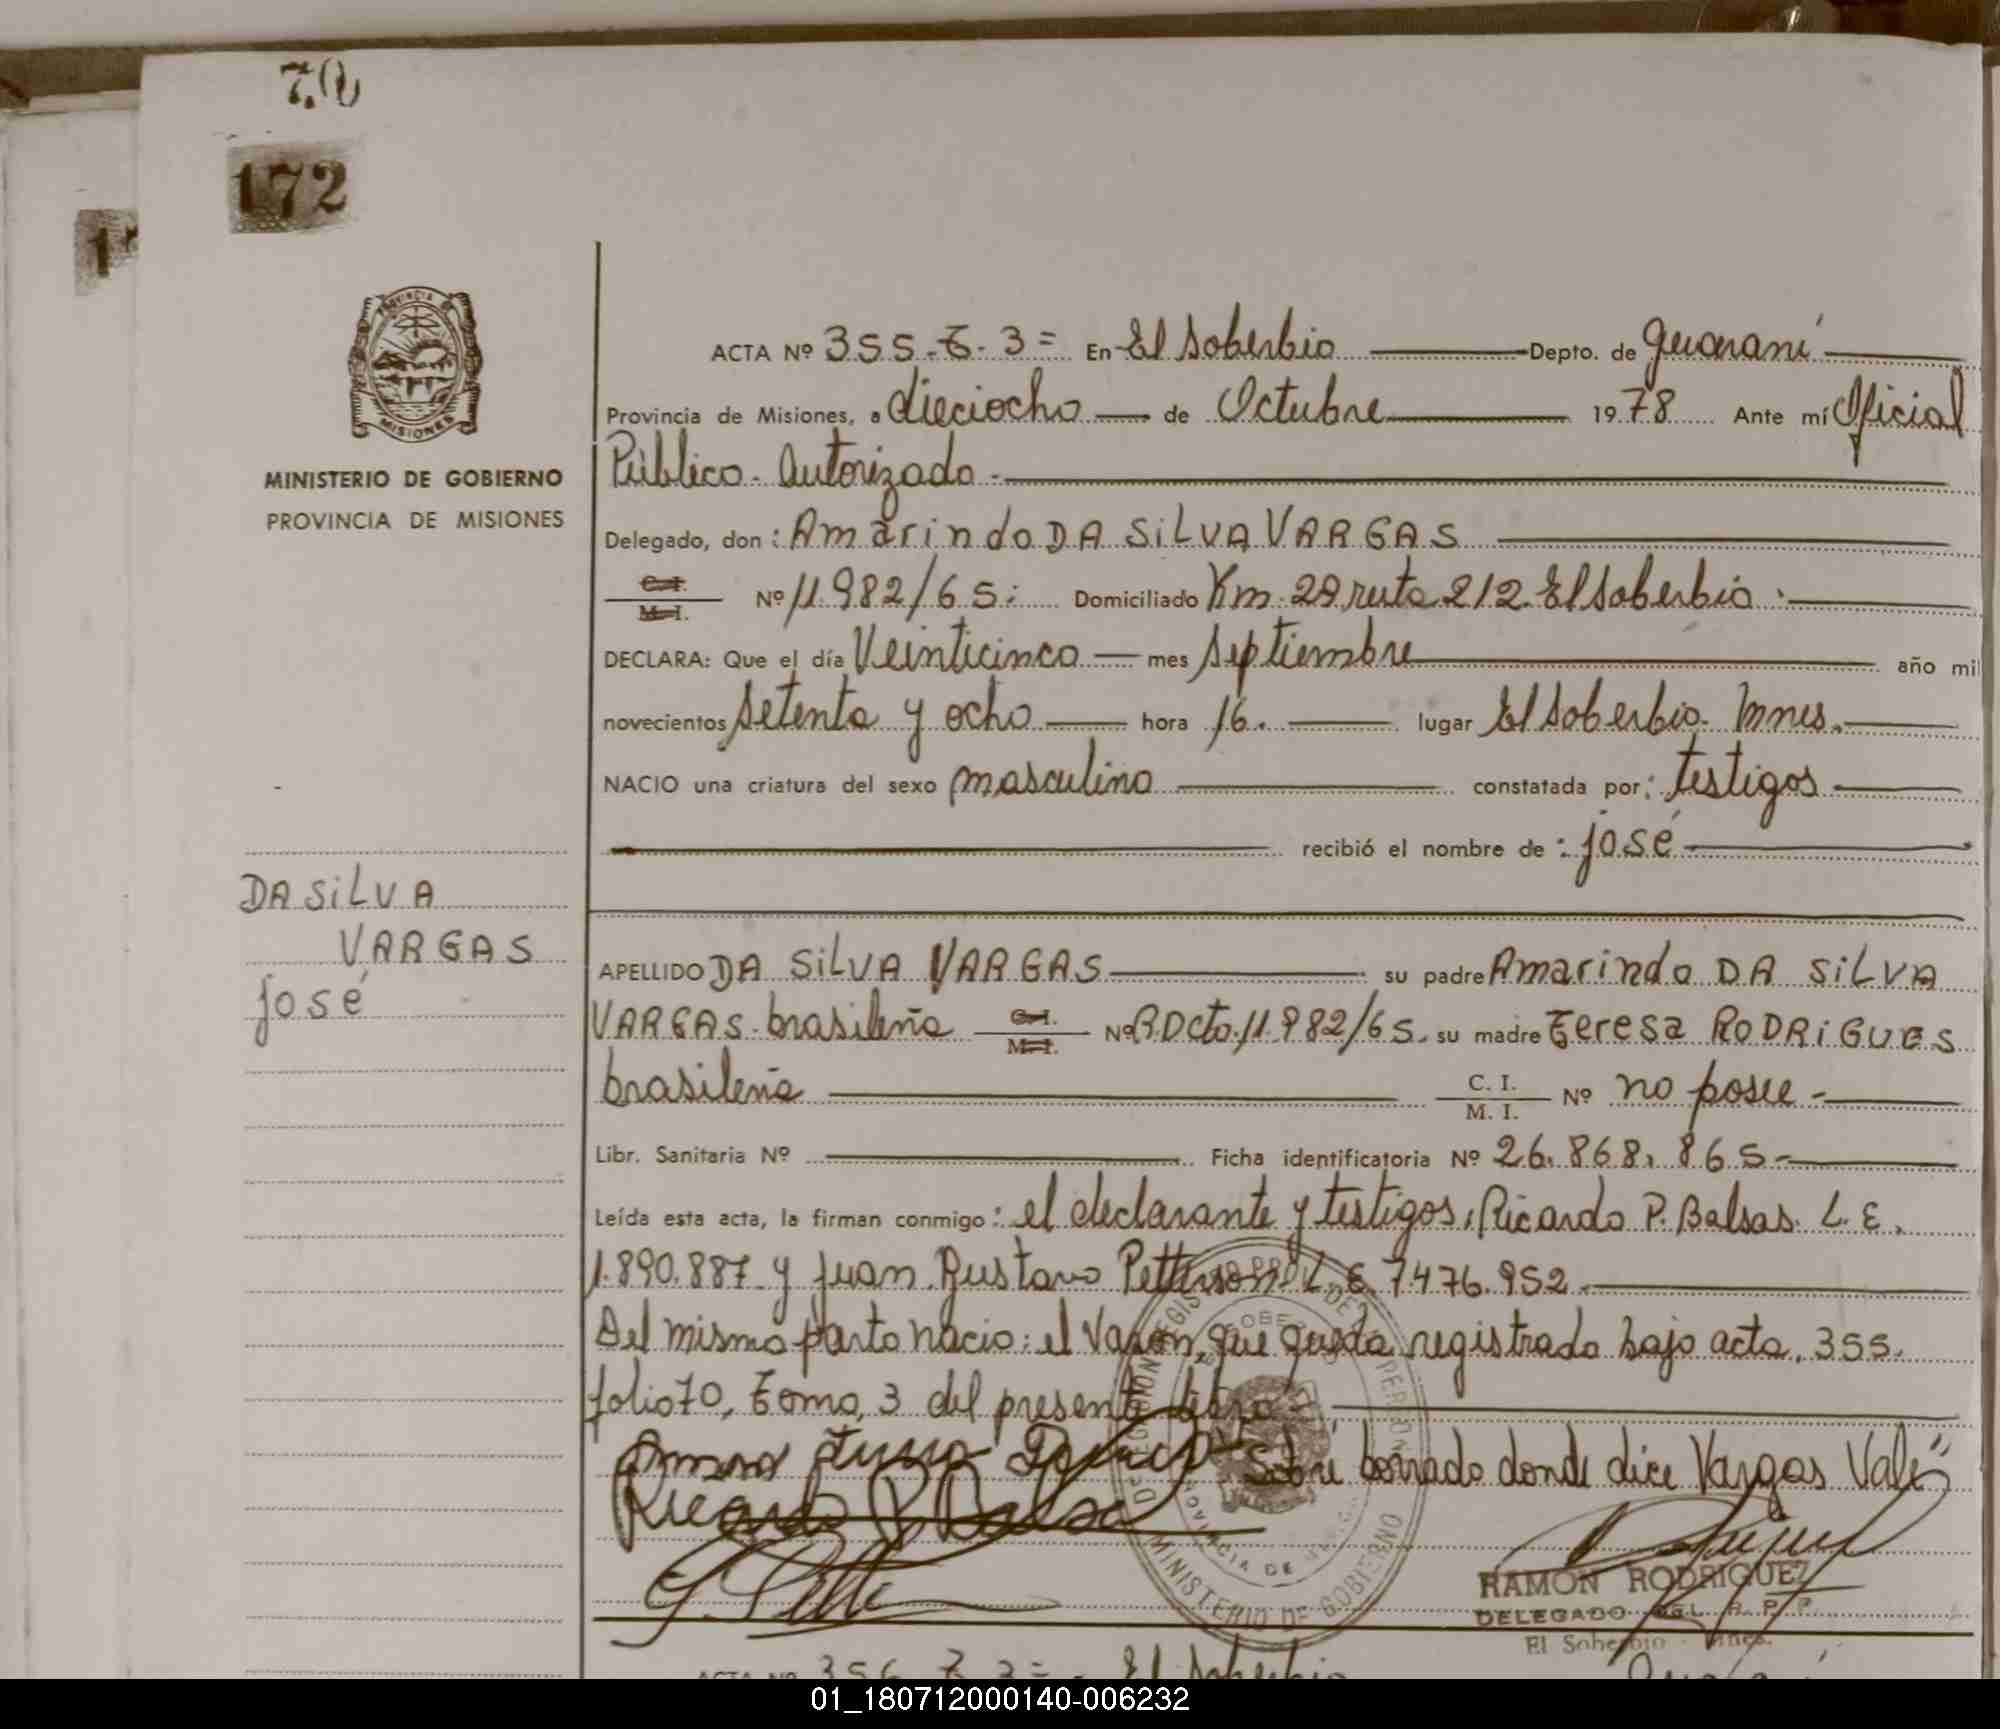 70
172
PROVINCIA DE
MISIONES
MINISTERIO DE GOBIERNO
PROVINCIA DE MISIONES
ACTA Nº 355-T-3= En El Soberbio Depto. de Guaraní
Provincia de Misiones, a dieciocho de Octubre 1978 Ante mí Oficial
Público Autorizado.
Delegado, don: Amarindo DA SiLVA VARGAS
C. I. / M. I. Nº 11.982/65: Domiciliado Km. 29 ruta 212 El Soberbio.
DECLARA: Que el día Veinticinco mes Septiembre año mil
novecientos Setenta y ocho hora 16. lugar El Soberbio. Mnes.
NACIO una criatura del sexo masculino constatada por: testigos
recibió el nombre de: josé
DA SiLVA
VARGAS
josé
APELLIDO DA SiLVA VARGAS su padre Amarindo DA SiLVA
VARGAS. brasileña C. I. / M. I. Nº R.Dcto. 11.982/65. su madre Teresa RODRiGUES
brasileña C. I. / M. I. Nº no posee-
Libr. Sanitaria Nº Ficha identificatoria Nº 26.868.865-
Leída esta acta, la firman conmigo: el declarante y testigos, Ricardo P. Balsas. L.E.
1.890.887 y Juan Gustavo Petterson L.E. 7.476.952.
Del mismo parto nacio: el Varon, que queda registrado bajo acta, 355.
folio 70, Tomo, 3 del presente libro
Sobre borrado donde dice Vargas Vale"
Ricardo P Balsa
MINISTERIO DE GOBIERNO
RAMON RODRIGUEZ
DELEGADO DEL R. P. P.
El Soberbio - Mnes.
ACTA Nº 356-T-3= El Soberbio Guaraní
01_180712000140-006232